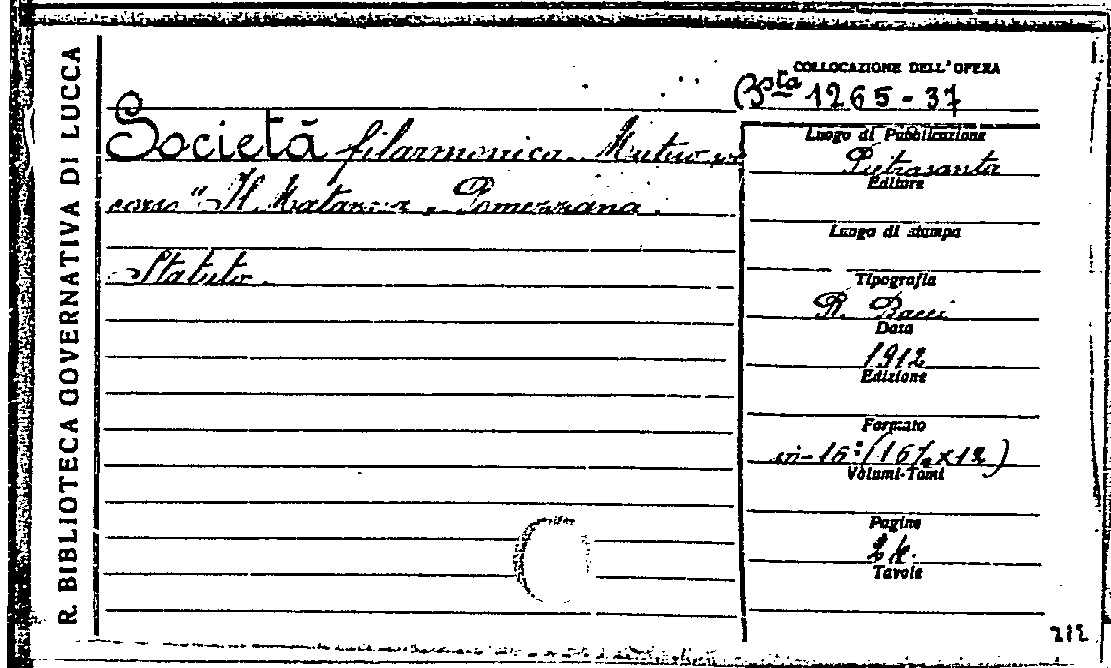 R. BIBLIOTECA GOVERNATIVA DI LUCCA
COLLOCAZIONE DELL'OPERA
Bsta 1265-37
Società filarmonica. Mutuo so
corso "
Pomezzana.
Statuto.
Luogo di Pubblicazione
Pietrasanta
Editore
Luogo di stampa
Tipografia
R. Bacci
Data
1912
Edizione
Formato
in-16°(16½x12)
Volumi-Tomi
Pagine
24.
Tavole
212